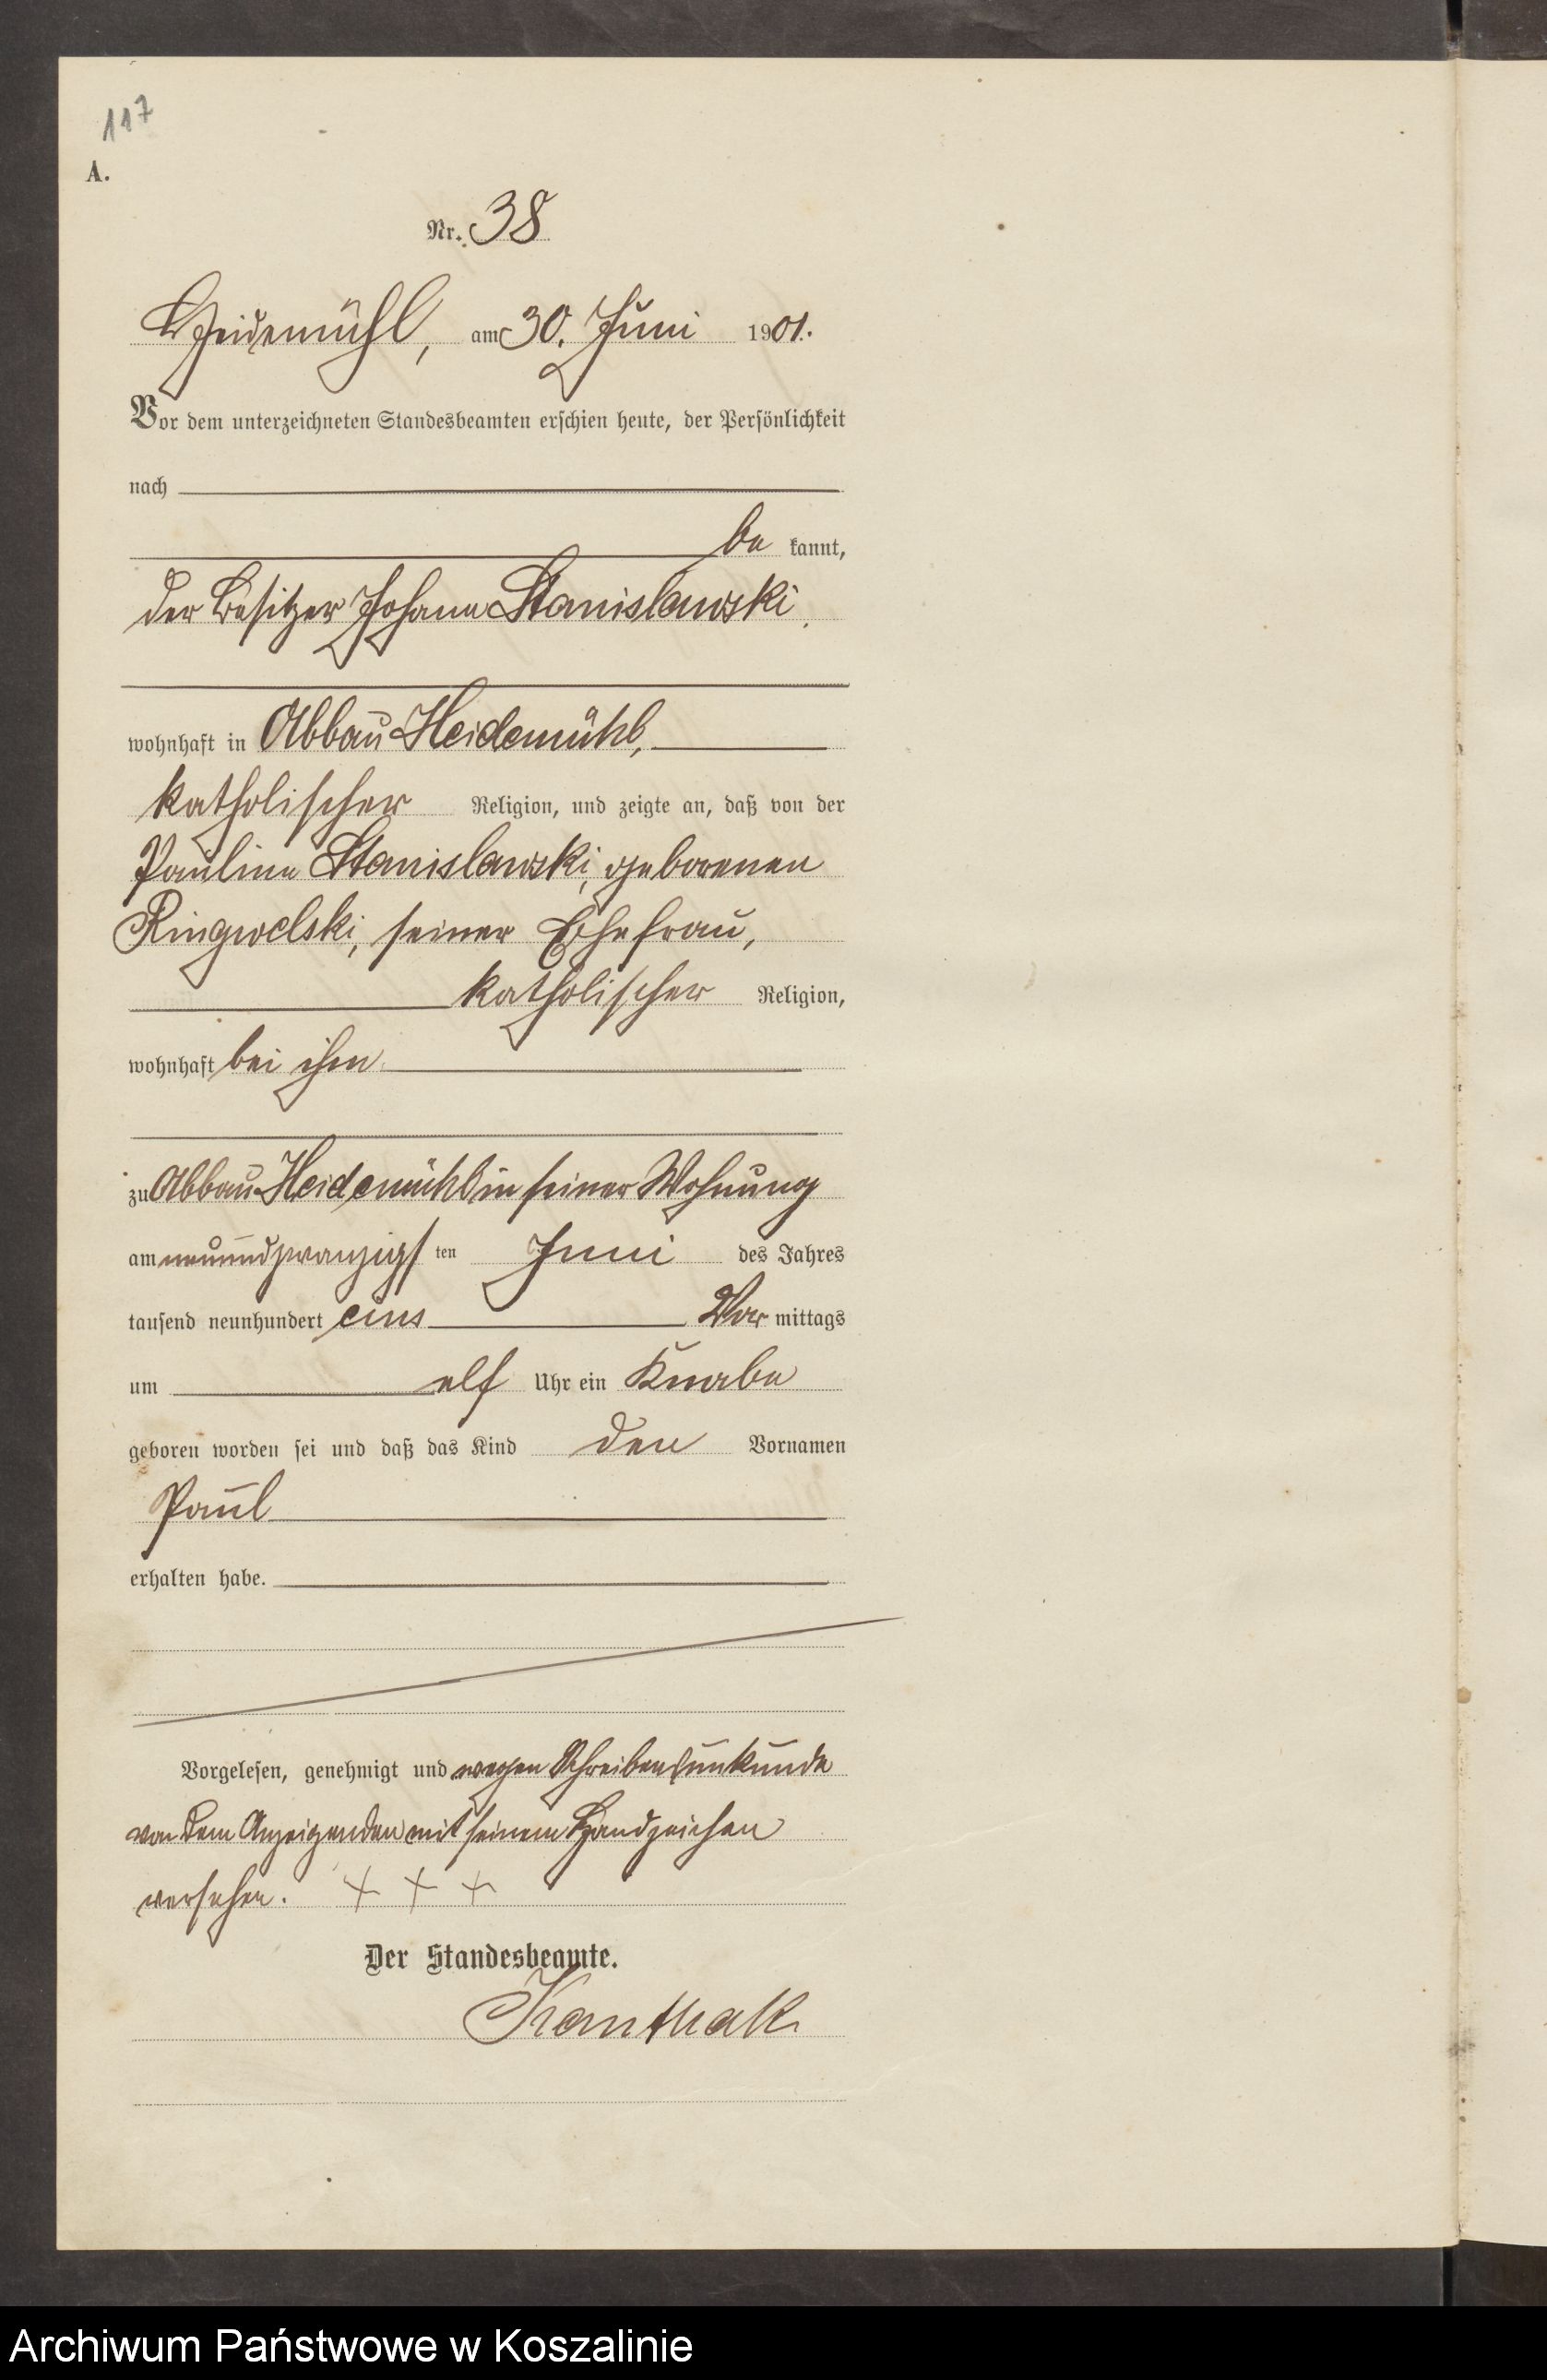 117
A.
Nr. 38
Heidemühl, am 30. Juni 1901.
Vor dem unterzeichneten Standesbeamten erschien heute, der Persönlichkeit
nach
be kannt,
der Besitzer Johann Stanislawski
wohnhaft in Abbau Heidemühl,
katholischer Religion, und zeigte an, daß von der
Pauline Stanislawski, geborenen
Ringwelski, seiner Ehefrau,
katholischer Religion,
wohnhaft bei ihm
zu Abbau Heidemühl in seiner Wohnung
am neunundzwanzigs ten Juni des Jahres
tausend neunhundert eins Vor mittags
um elf Uhr ein Knabe
geboren worden sei und daß das Kind den Vornamen
Paul
erhalten habe.
Vorgelesen, genehmigt und wegen Schreibensunkunde
von dem Anzeigenden mit seinem Handzeichen
versehen. + + +
Der Standesbeamte.
Kanthak
Archiwum Państwowe w Koszalinie